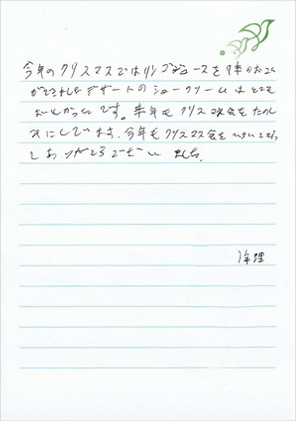 今年のクリスマスではリンゴジュースを飲むこと
ができましたデザートのシュークリームはとても
おいしかったです。来年もクリスマス会をたのし
みにしています。今年もクリスマス会を
ありがとうございました。
倫理